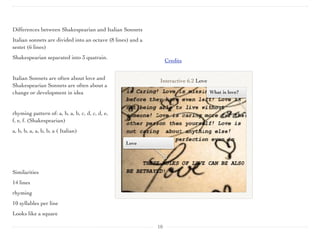 Differences between Shakespearian and Italian Sonnets
Italian sonnets are divided into an octave (8 lines) and a
sestet (6 lines)
Shakespearian separated into 3 quatrain.
Italian Sonnets are often about love and
Shakespearian Sonnets are often about a
change or development in idea
rhyming pattern of: a, b, a, b, c, d, c, d, e,
f, e, f. (Shakespearian)
a, b, b, a, a, b, b, a ( Italian)
Similarities
14 lines
rhyming
10 syllables per line
Looks like a square
Credits
Interactive 6.2 Love
is Caring! Love is missin
What is love?
before they have even left! Love is
living without
someone! Love is caring more for the
other person then yourself! Love is
not caring about anything else!
perfection even
Love
THESE RULES OF LOVE CAN BE ALSO
BE BETRAYED!
18